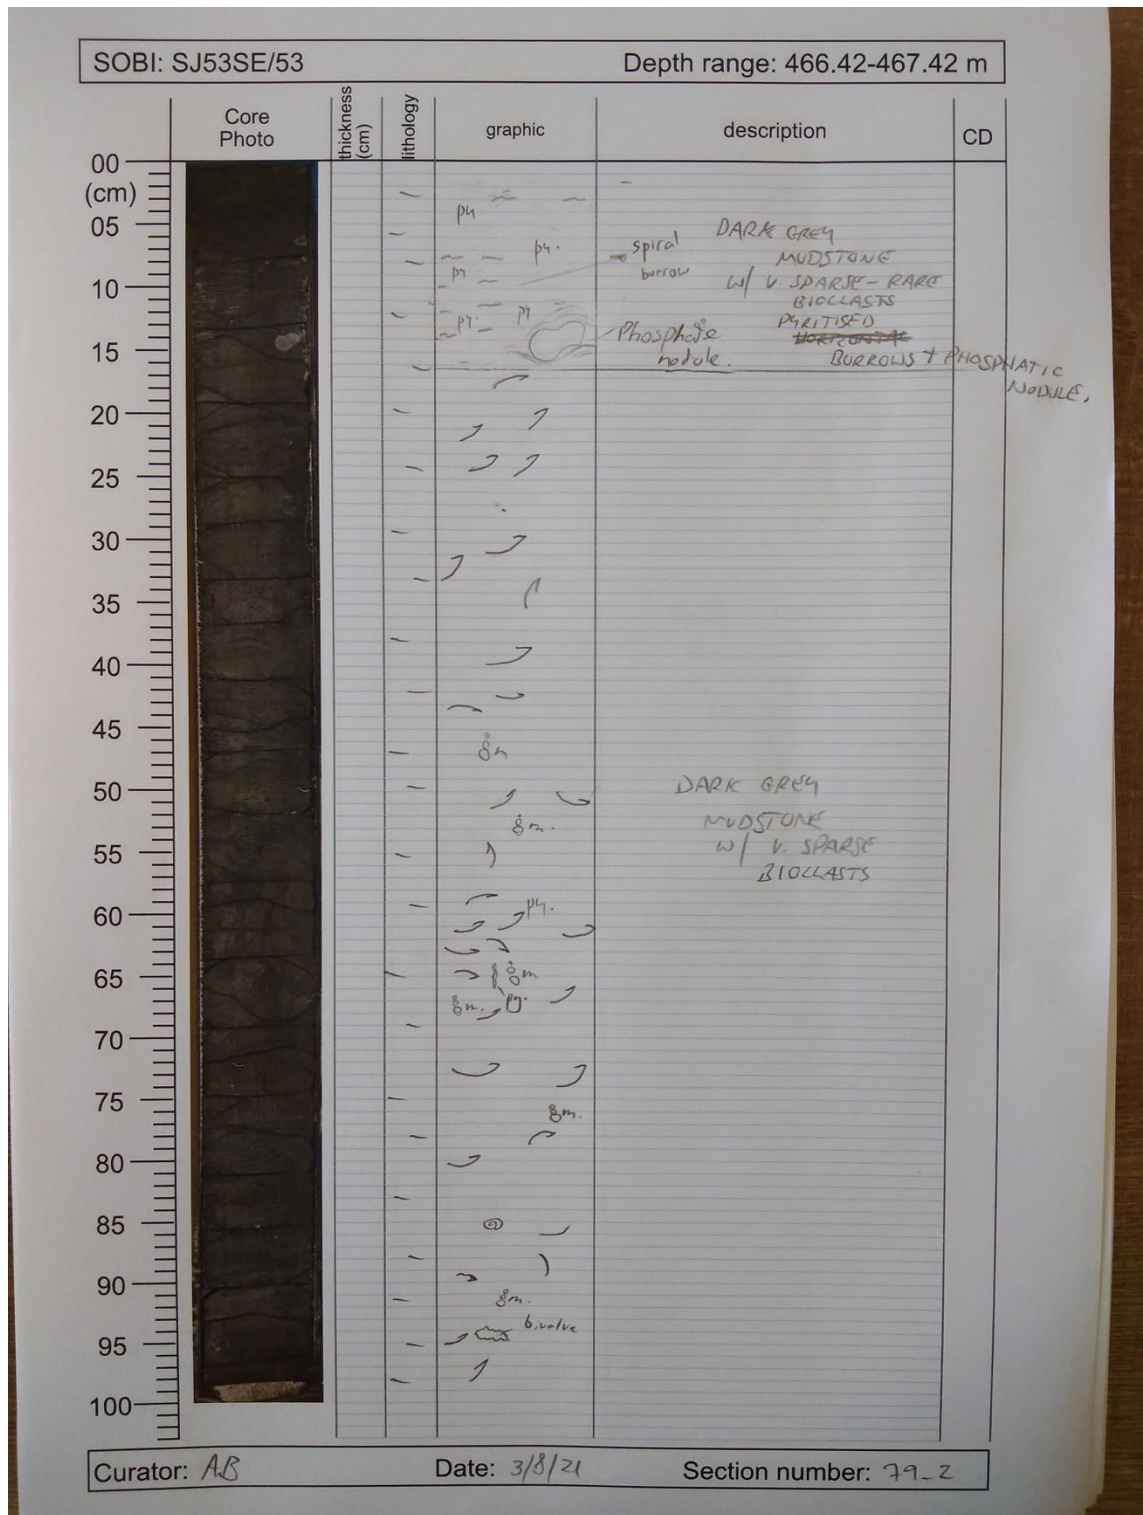 SOBI: SJ53SE/53
Depth range: 466.42-467.42 m
Core
Photo
thickness
(cm)
lithology
graphic
description
CD
00
(cm)
05
10
15
20
25
30
35
40
45
50
55
60
65
70
75
80
85
90
95
100
py
py.
py
py.
py
spiral
burrow
Phosphate
nodule.
DARK GREY
MUDSTONE
W/ V. SPARSE - RARE
BIOCLASTS
PYRITISED
HORIZONTAL
BURROWS + PHOSPHATIC
NODULE.
m
m.
DARK GREY
MUDSTONE
W/ V. SPARSE
BIOCLASTS
py.
m
m.
py.
m.
m.
bivalve
Curator: AB
Date: 3/8/21
Section number: 79_2